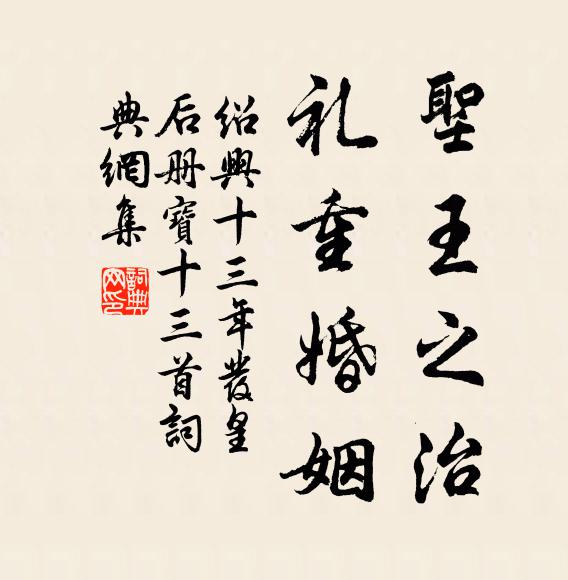 聖王之治
礼重婚姻
绍興十三年發皇
后册寶十三首詞
典網集
詞典网印